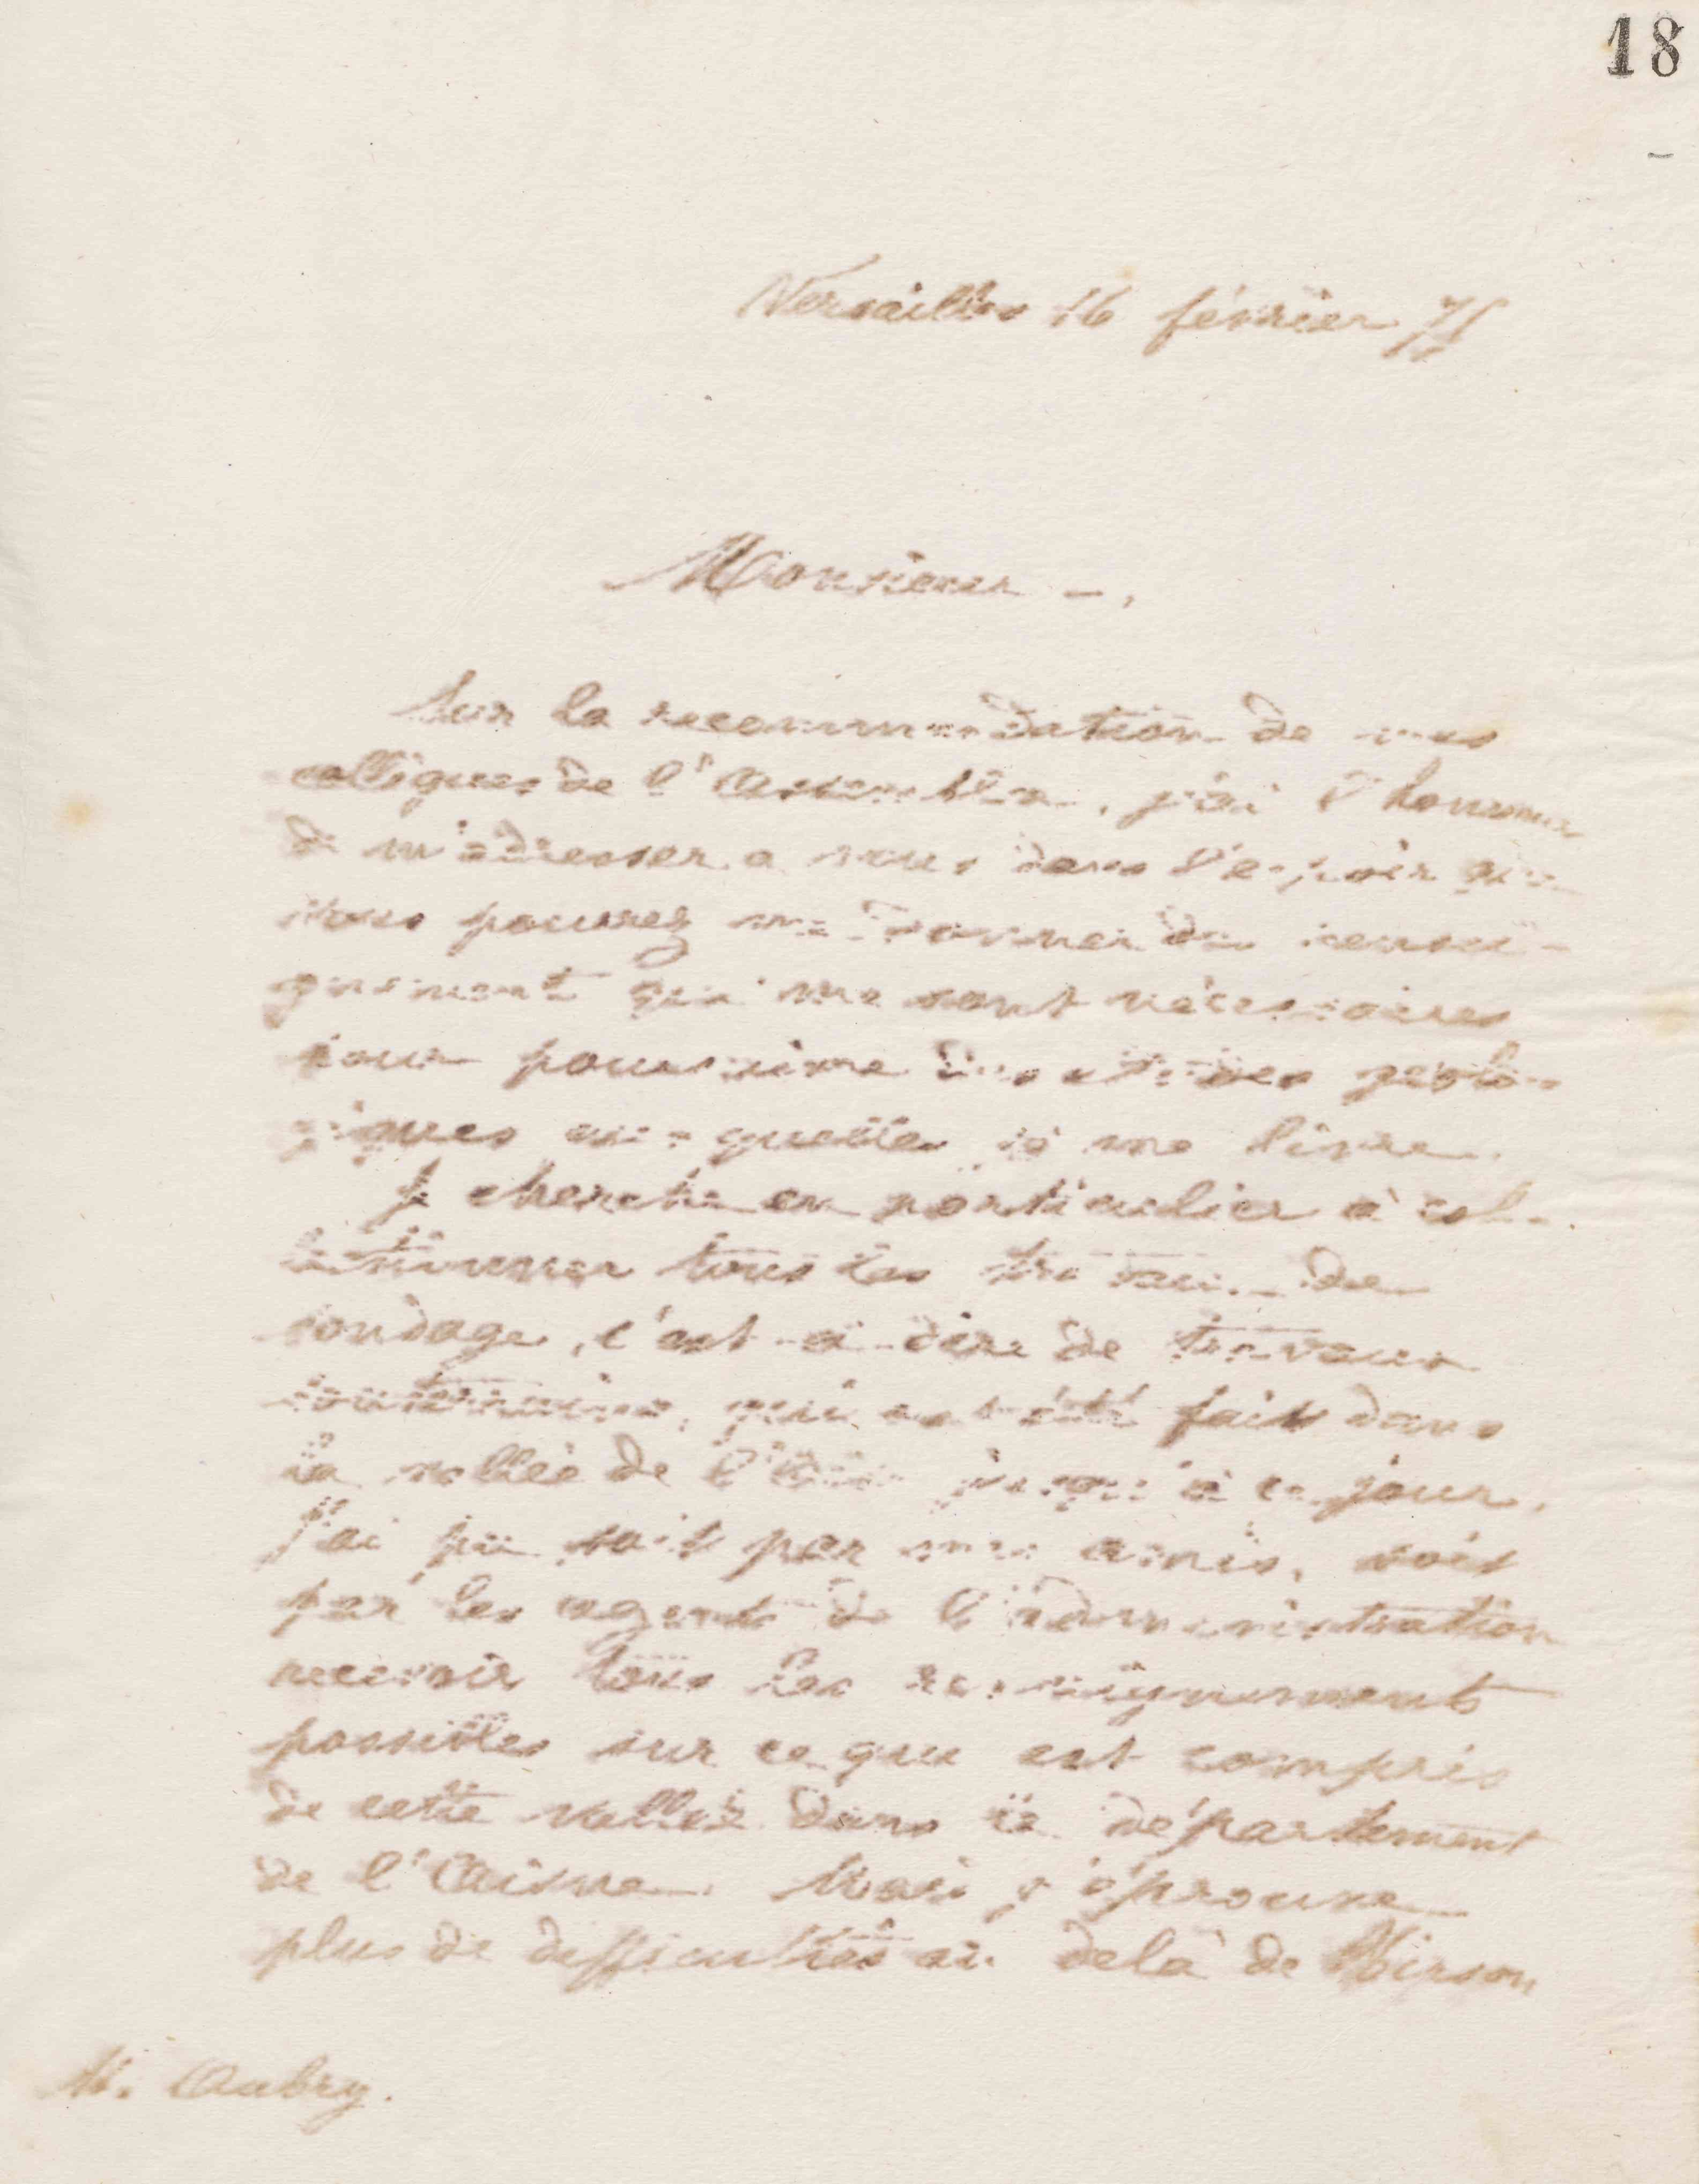 18
Versailles 16 février 75
Monsieur -,
Sur la recommandation de mes
collègues de l'Assemblée, j'ai l'honneur
de m'adresser a vous dans l'espoir que
vous pourrez me donner des rensei-
gnement qui me sont nécessaires
pour poursuivre des études géolo-
giques aux quelles je me livre.
Je cherche en particulier à col-
lectionner tous les travaux de
sondage, c'est-à-dire de travaux
souterrains, qui ont été faits dans
la vallée de l'Oise jusqu'à ce jour.
J'ai pu soit par mes amis, soit
par les agents de l'administration
recevoir tous les renseignements
possibles sur ce que est compris
de cette vallée dans le département
de l'Aisne. Mais j'éprouve
plus de difficultés au delà de Hirson
M. Aubry.